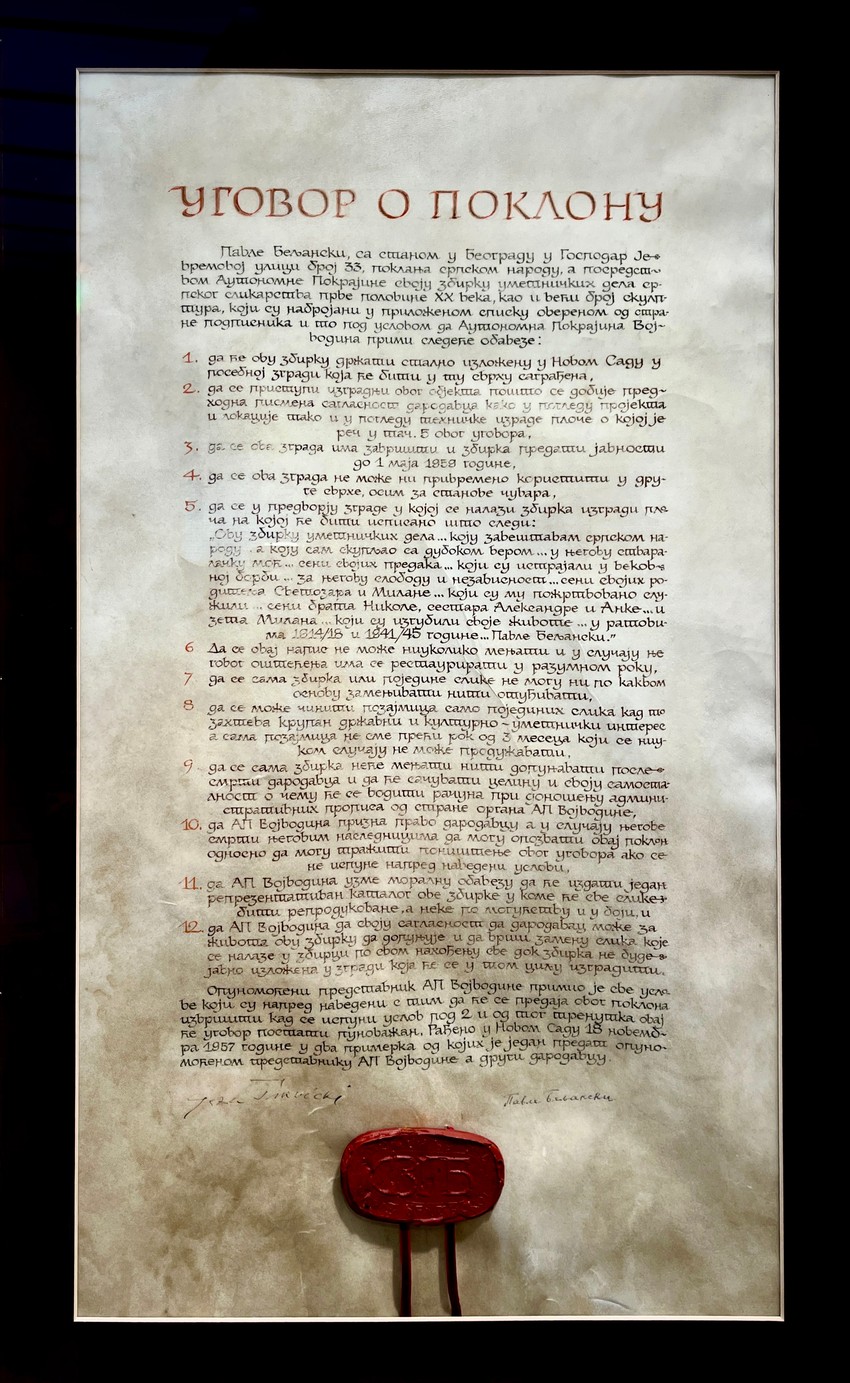 УГОВОР О ПОКЛОНУ
Павле Бељански, са станом у Београду у Господар Је-
времовој улици број 33, поклања српском народу, а посредст-
вом Аутономне Покрајине своју збирку уметничких дела ср-
пског сликарства прве половине XX века, као и већи број скулп-
тура, који су набројани у приложеном списку овереном од стра-
не подписника и то под условом да Аутономна Покрајина Вој-
водина прими следеће обавезе:
1. да ће ову збирку држати стално изложену у Новом Саду у
посебној згради која ће бити у ту сврху саграђена,
2. да се приступи изградњи овог објекта пошто се добије пред-
ходна писмена сагласност дародавца како у погледу пројекта
и локације тако и у погледу техничке израде плоче о којој је
реч у тач. 5 овог уговора,
3. да се ова зграда има завршити и збирка предати јавности
до 1 маја 1959 године,
4. да се ова зграда не може ни привремено користити у дру-
ге сврхе, осим за станове чувара,
5. да се у предворју зграде у којој се налази збирка изгради пло-
ча на којој ће бити исписано што следи:
„Ову збирку уметничких дела... коју завештавам српском на-
роду . а коју сам скупљао са дубоком вером... у његову ствара-
лачку моћ... сени својих предака... који су истрајали у веков-
ној борби ... за његову слободу и независност... сени својих ро-
дитеља Светозара и Милане... који су му пожртвовано слу-
жили ... сени брата Николе, сестара Александре и Анке... и
зета Милана ... који су изгубили своје животе ... у ратови-
ма 1914/18 и 1941/45 године... Павле Бељански.”
6 Да се овај натпис не може ниуколико мењати и у случају ње
говог оштећења има се рестаурирати у разумном року,
7 да се сама збирка или поједине слике не могу ни по каквом
основу замењивати нити отуђивати,
8 да се може чинити позајмица само појединих слика кад то
захтева крупан државни и културно-уметнички интерес
а сама позајмица не сме прећи рок од 3 месеца који се ниу-
ком случају не може продужавати,
9. да се сама збирка неће мењати нити допуњавати после
смрти дародавца и да ће сачувати целину и своју самоста-
лност о чему ће се водити рачуна при доношењу админи-
стративних прописа од стране органа АП Војводине,
10. да АП Војводина призна право дародавцу а у случају његове
смрти његовим наследницима да могу опозвати овај поклон
односно да могу тражити поништење овог уговора ако се
не испуне напред наведени услови,
11. да АП Војводина узме моралну обавезу да ће издати један
репрезентативан каталог ове збирке у коме ће све слике
бити репродуковане, а неке по могућству и у боји, и
12. да АП Војводина да своју сагласност да дародавац може за
живота ову збирку да допуњује и да врши замену слика које
се налазе у збирци по свом нахођењу све док збирка не буде
јавно изложена у згради која ће се у том циљу изградити.
Опуномоћени представник АП Војводине примио је све усло-
ве који су напред наведени с тим да ће се предаја овог поклона
извршити кад се испуни услов под 2 и од тог тренутка овај
ће уговор постати пуноважан. Рађено у Новом Саду 18 новемб-
ра 1957 године у два примерка од којих је један предат опуно-
моћеном представнику АП Војводине а други дародавцу.
Павле Бељански